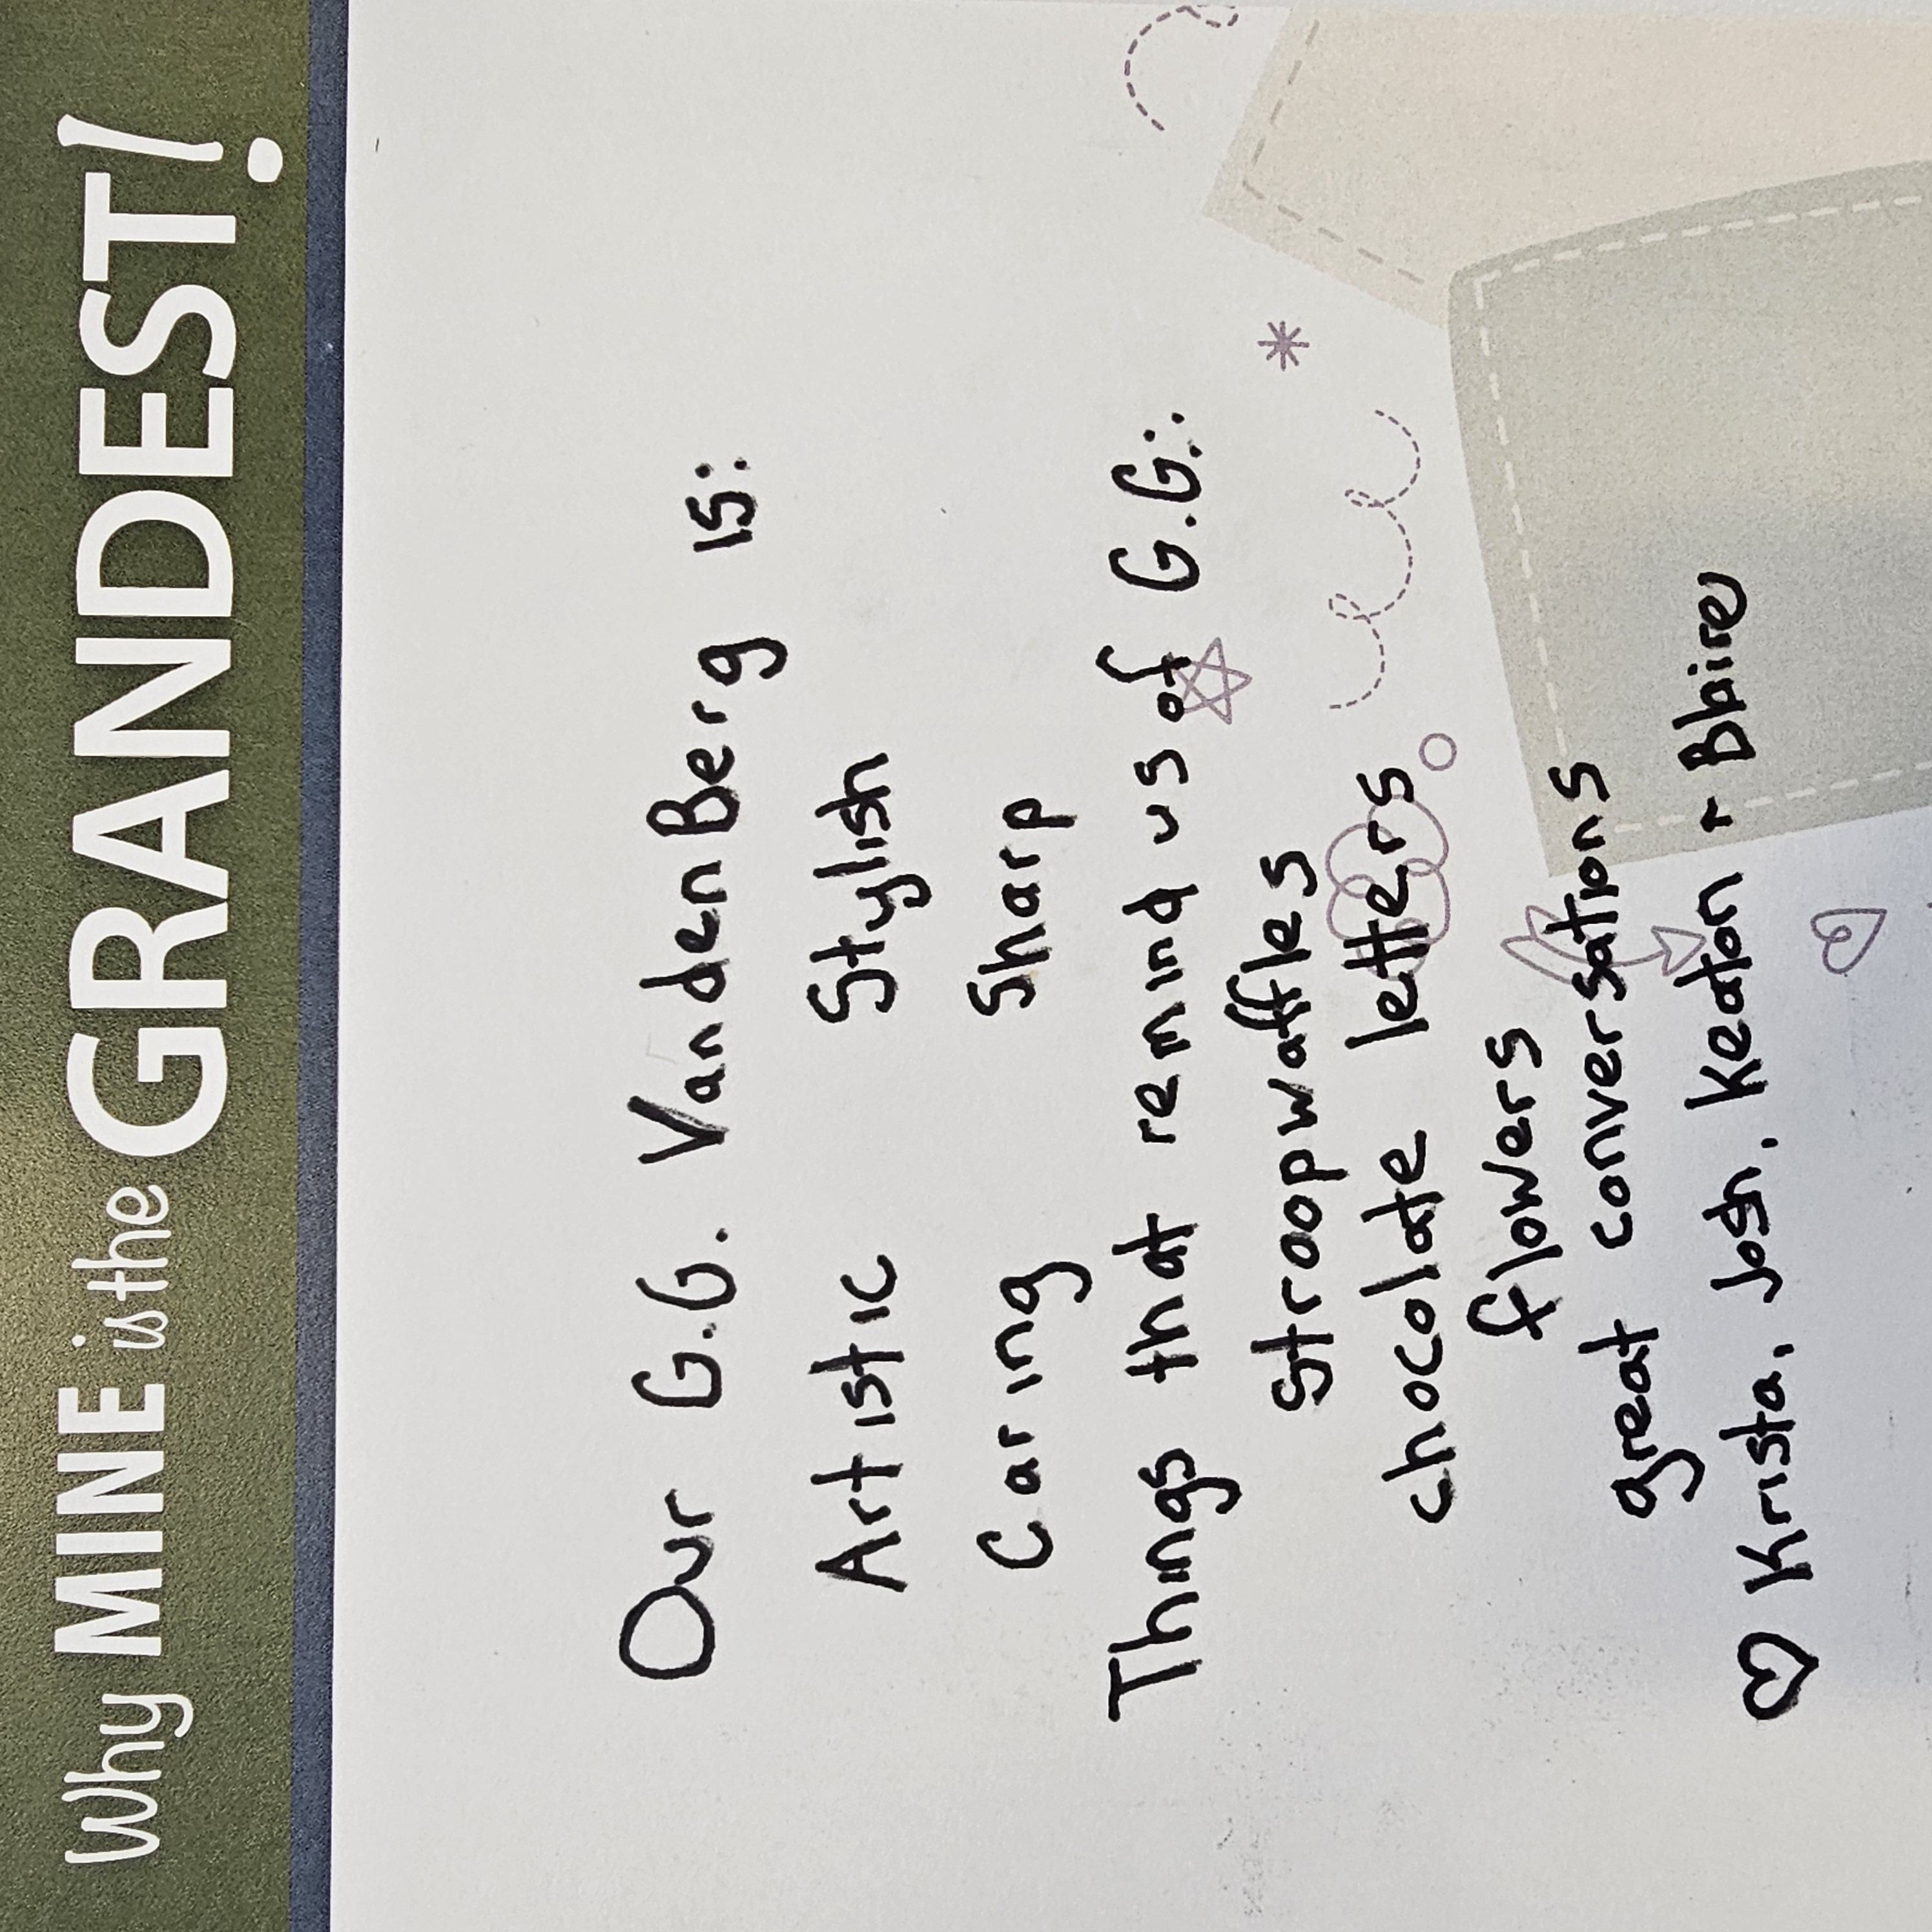 Why MINE is the GRANDEST!
Our G.G. VandenBerg is:
Artistic Stylish
Caring Sharp
Things that remind us of G.G.:
Stroopwaffles
chocolate letters
flowers
great conversations
♡ Krista, Josh, Keaton + Blaire